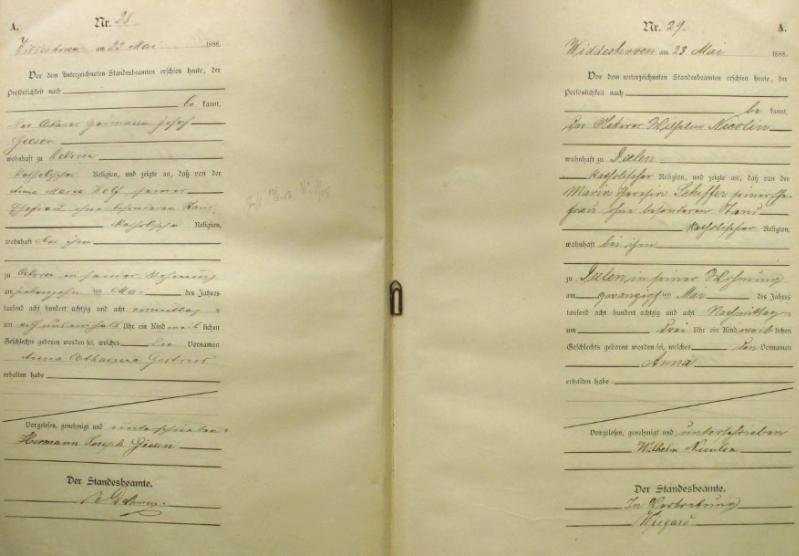 A.
Nr. 28
am 22 Mai 1888.
Vor dem unterzeichneten Standesbeamten erschien heute, der
Persönlichkeit nach
be kannt,
der Ackerer Hermann Josef
Giesen
wohnhaft zu
katholischer Religion, und zeigte an, daß von der
Anna Maria
Ehefrau ohne besonderen Stand
katholischer Religion,
wohnhaft bei ihm
zu in seiner Wohnung
am siebenzehn ten Mai des Jahres
tausend acht hundert achtzig und acht Vormittags
um Uhr ein Kind weib lichen
Geschlechts geboren worden sei, welches die Vornamen
Anna Catharina Gertrud
erhalten habe
Vorgelesen, genehmigt und unterschrieben
Hermann Joseph Giesen
Der Standesbeamte.
Nr. 29.
A.
Widdeshoven am 23 Mai 1888.
Vor dem unterzeichneten Standesbeamten erschien heute, der
Persönlichkeit nach
be kannt,
der Ackerer Wilhelm Nicolin
wohnhaft zu
katholischer Religion, und zeigte an, daß von der
Maria Scheffer seiner Ehe
frau ohne besonderen Stand
katholischer Religion,
wohnhaft bei ihm
zu in seiner Wohnung
am zwanzigsten Mai des Jahres
tausend acht hundert achtzig und acht Nachmittags
um drei Uhr ein Kind weib lichen
Geschlechts geboren worden sei, welches den Vornamen
Anna
erhalten habe
Vorgelesen, genehmigt und unterschrieben
Wilhelm Nicolin
Der Standesbeamte.
In Vertretung